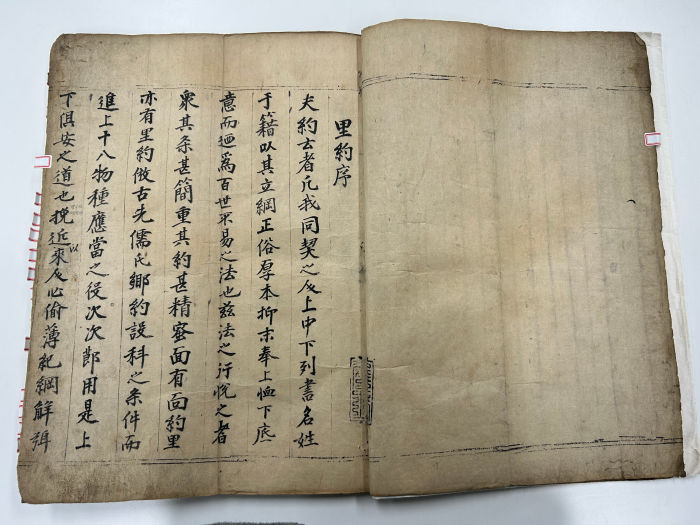 里約序
夫約云者凡我同契之民上中下列書名姓
于籍以其立綱正俗厚本抑末奉上恤下底
意而迺爲百世不易之法也茲法之行悅之者
衆其条甚簡重其約甚精密面有面約里
亦有里約倣古先儒氏鄕約設科之条件而
進上十八物種應當之役次次用是上
下俱安之道也挽近以來民心偷薄紀綱解弛